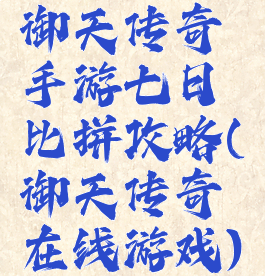 御天传奇
手游七日
比拼攻略(
御天传奇
在线游戏)